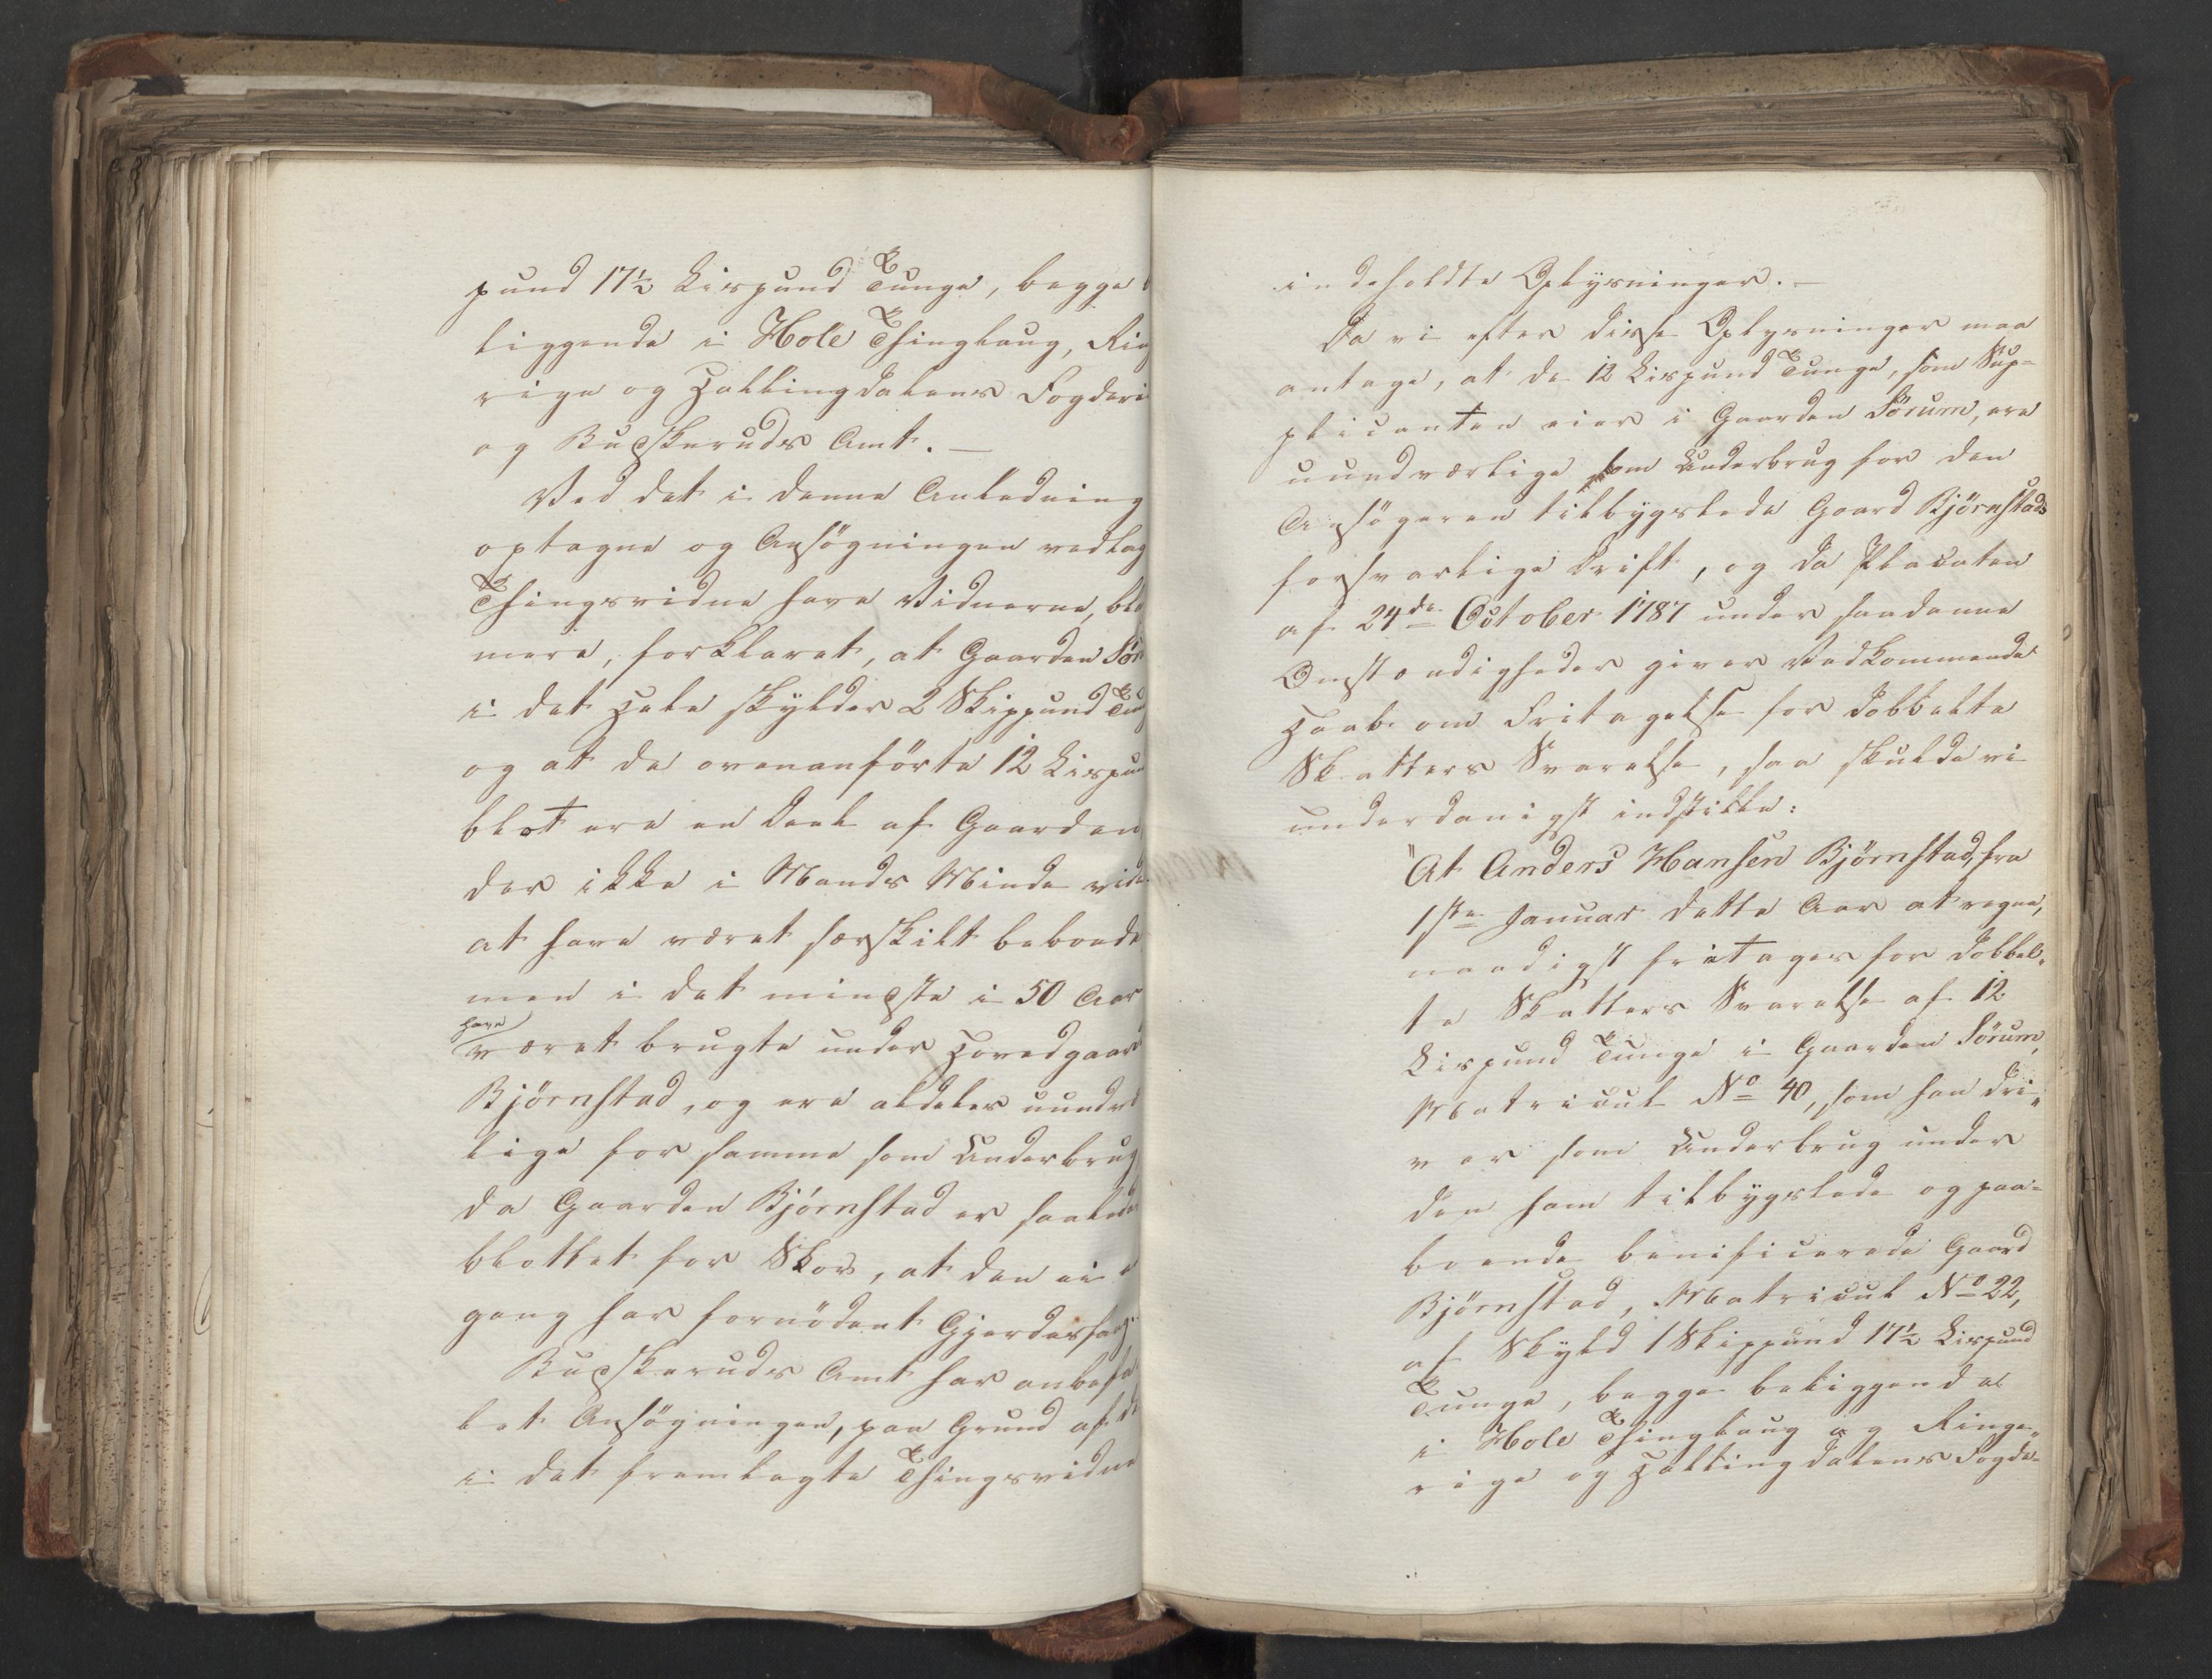 pund 17½ Lispund Tunge, begge b
liggende i Hole Thinglaug, Ring
rige og Hallingdalens Fogderi
og Budskeruds Amt. —
Ved det i denne Anledning
optagne og Ansøgningen vedlag
Thingsvidne have Vidnerne, bla
mere, forklaret, at Gaarden Sör
i det Hele skylder 2 Skippund Tung
og at de ovenanförte 12 Lispun
blot ere en Deel af Gaarden
der ikke i Mands Minde vide
at have været særskilt beboede
men i det mindste i 50 Aar
have
været brugte under Hovedgaard
Björnstad, og ere aldeles uundvæ
lige for samme som Underbrug
da Gaarden Björnstad er saalede
blottet for Skov, at den ei e
gang har fornödent Gjerdesfang.
Budskeruds Amt har anbefa
let Ansögningen, paa Grund af de
i det fremlagte Thingsvidne
indeholdte Oplysninger. —
Da vi efter disse Oplysninger maa
antage, at de 12 Lispund Tunge, som Sup=
plicanten eier i Gaarden Sörum, ere
uundværlige som Underbrug for den
Ansögeren tilbygslede Gaard Björnstads
forsvarlige Drift, og da Placaten
af 24de October 1787 under saadanne
Omstændigheder giver Vedkommende
Haab om Fritagelse for dobbelte
Skatters Svarelse, saa skulde vi
underdanigst indstille:
"At Anders Hansen Björnstad, fra
1ste Januar dette Aar at regne,
naadigst fritages for dobbel„
te Skatters Svarelse af 12
Lispund Tunge i Gaarden Sörum,
Matricul No 40, som han dri„
ver som Underbrug under
den ham tilbygslede og paa=
boende beneficerede Gaard
Björnstad, Matricul No 22,
af Skyld 1 Skippund 17½ Lispund
Tunge, begge beliggende
i Hole Thinglaug og Ringe„
rige og Hallingdalens Fogde=